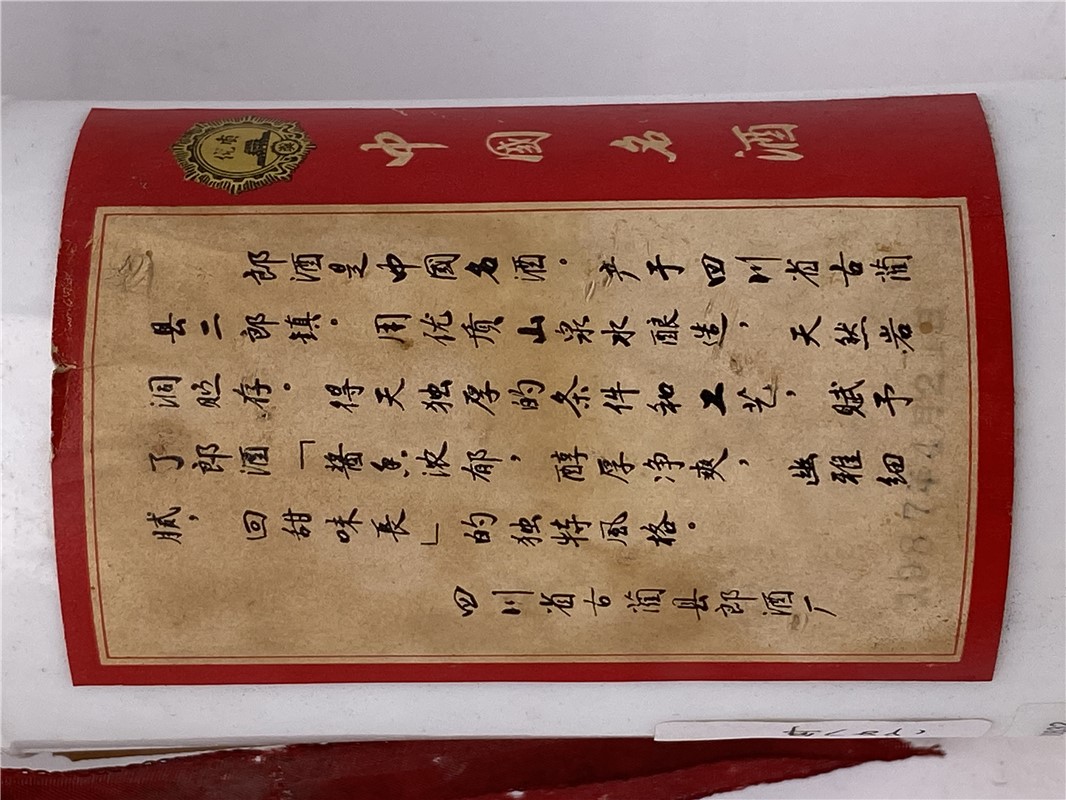 中國名酒
郎酒是中國名酒。产于四川省古蔺
县二郎镇。用优质山泉水酿造，天然岩
洞贮存。得天独厚的条件和工艺，赋予
了郎酒「醬香浓郁，醇厚净爽，幽雅细
腻，回甜味長」的独特风格。
四川省古蔺县郎酒厂